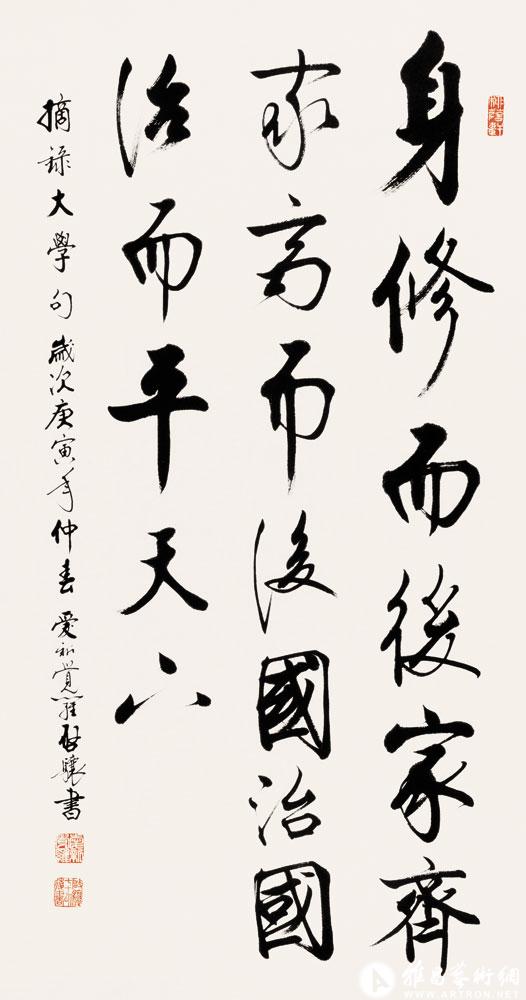 身修而後家齊
家齊而後國治國
治而平天下
摘錄大學句 歲次庚寅年仲春 愛新覺羅啟驤書
雅昌藝術網
WWW.ARTRON.NET